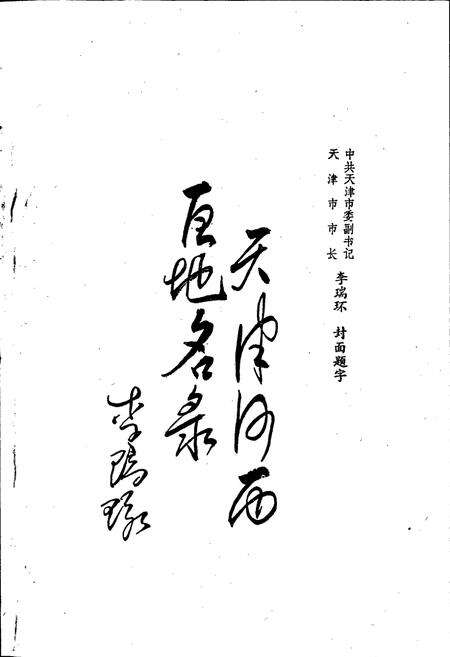 中共天津市委副书记
天津市市长
李瑞环 封面题字
天津河西
区地名录
李瑞环